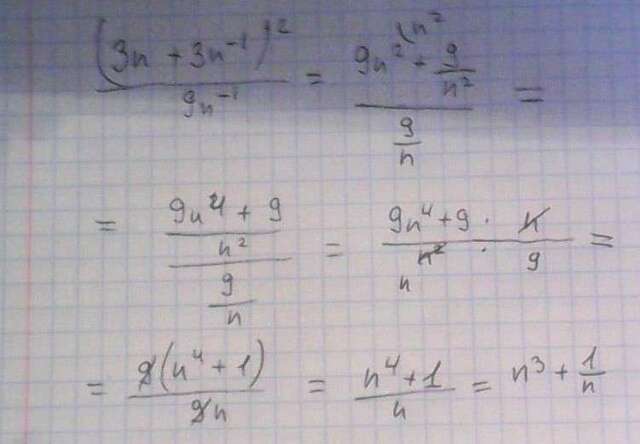 (3n + 3n⁻¹)² / 9n⁻¹ = (9n² + 9/n²) / (9/n) =
= ((9n⁴ + 9) / n²) / (9/n) = (9n⁴ + 9) / n² · n / 9 =
= 9(n⁴ + 1) / 9n = (n⁴ + 1) / n = n³ + 1/n